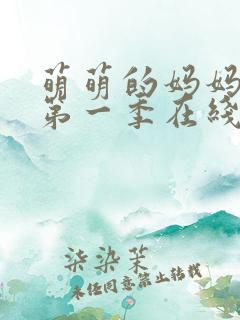 萌萌的妈妈
第一季在线
柒染茉
未经同意禁止转载